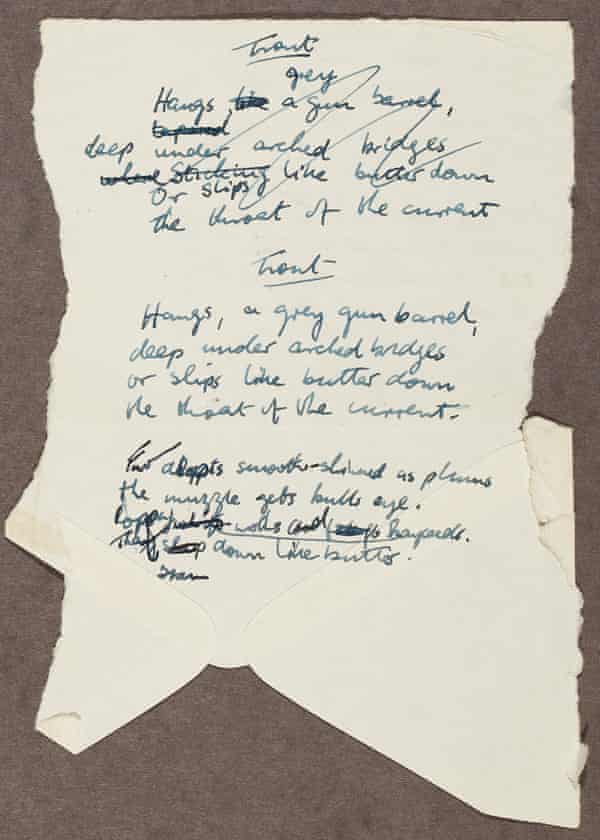 Trout
grey
Hangs like a gun barrel,
deep under arched bridges
where Sticking like butter down
Or slips
the throat of the current
Trout
Hangs, a grey gun barrel,
deep under arched bridges
or slips like butter down
the throat of the current.
smooth-skinned as plums
the muzzle gets bulls eye.
and
down like butter.